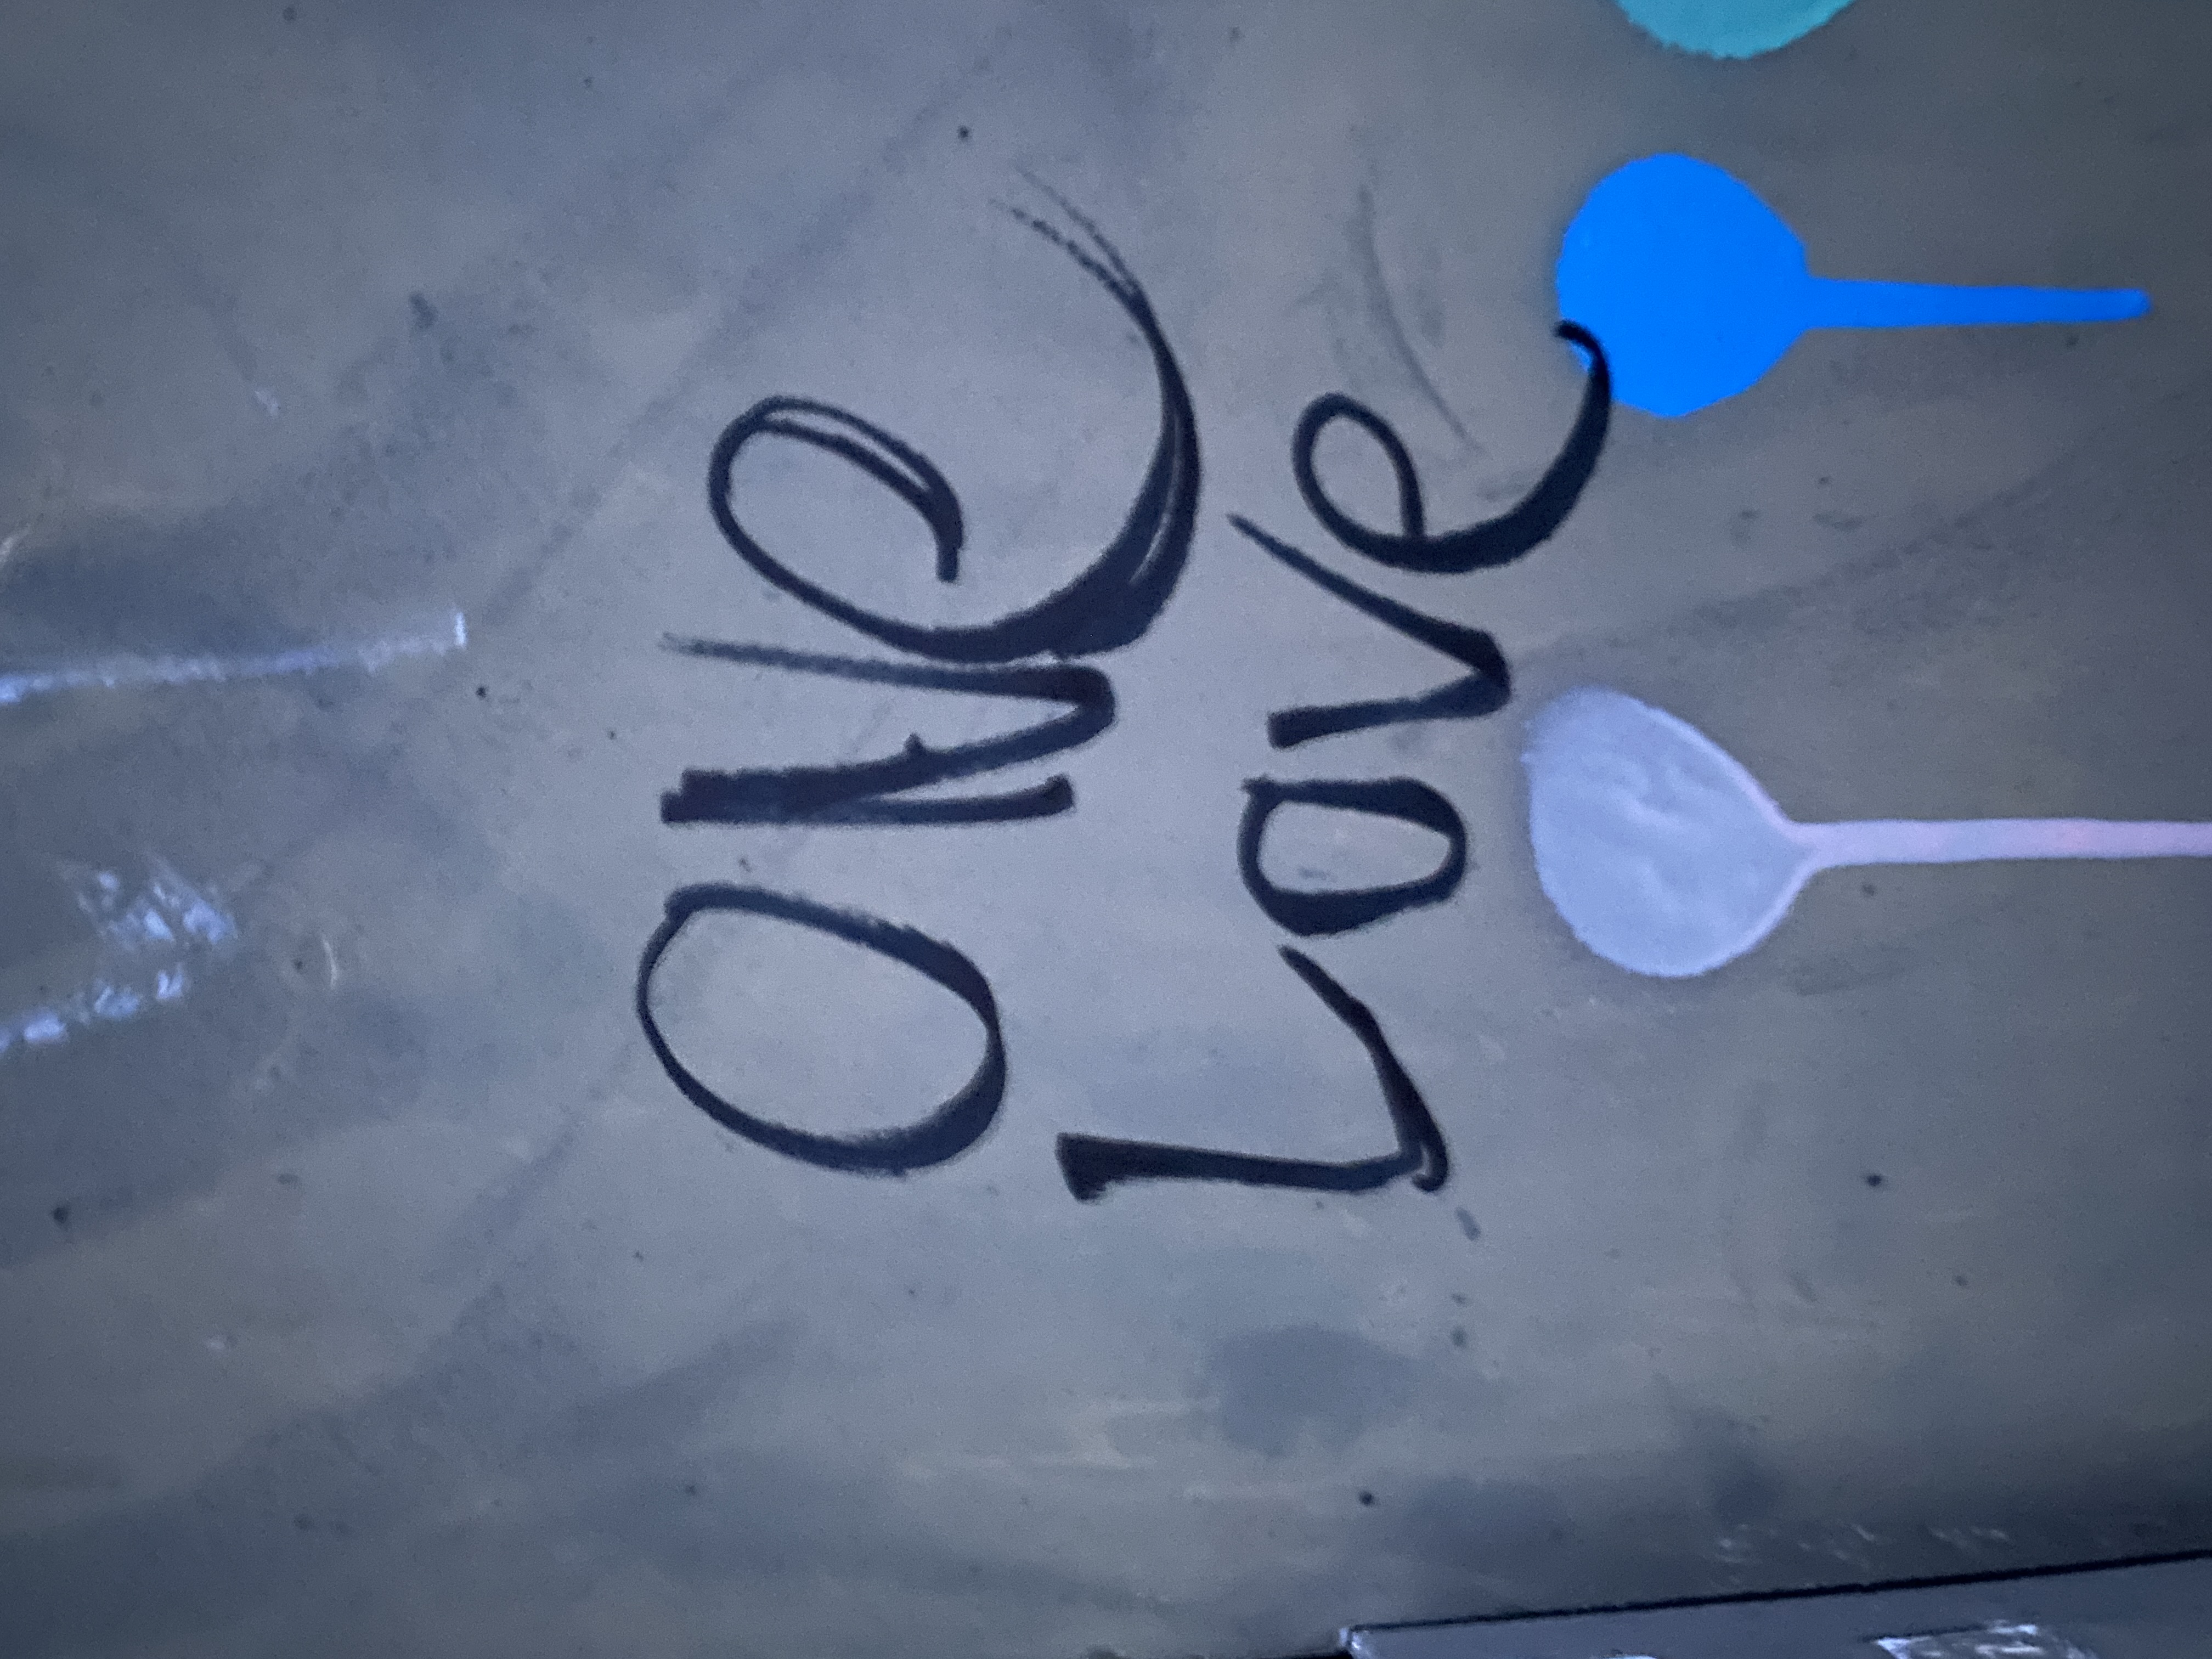 ONe
Love